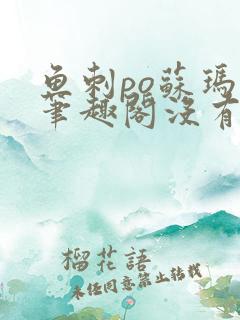 鱼刺po蘇瑪
筆趣閣没有
榴花語
未任同意禁止转载